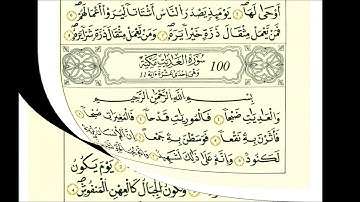 أَوْحَىٰ لَهَا يَوْمَئِذٍ يَصْدُرُ النَّاسُ أَشْتَاتًا لِّيُرَوْا أَعْمَالَهُمْ
فَمَن يَعْمَلْ مِثْقَالَ ذَرَّةٍ خَيْرًا يَرَهُ وَمَن يَعْمَلْ مِثْقَالَ ذَرَّةٍ شَرًّا يَرَهُ
سُورَةُ الْعَادِيَاتِ مَكِّيَّةٌ
100
وَهِيَ إِحْدَى عَشْرَةَ آيَة 11
بِسْمِ اللَّهِ الرَّحْمَٰنِ الرَّحِيمِ
وَالْعَادِيَاتِ ضَبْحًا فَالْمُورِيَاتِ قَدْحًا فَالْمُغِيرَاتِ صُبْحًا
فَأَثَرْنَ بِهِ نَقْعًا فَوَسَطْنَ بِهِ جَمْعًا إِنَّ الْإِنسَانَ
لَكَنُودٌ وَإِنَّهُ عَلَىٰ ذَٰلِكَ لَشَهِيدٌ
يَوْمَ يَكُونُ
وَتَكُونُ الْجِبَالُ كَالْعِهْنِ الْمَنفُوشِ